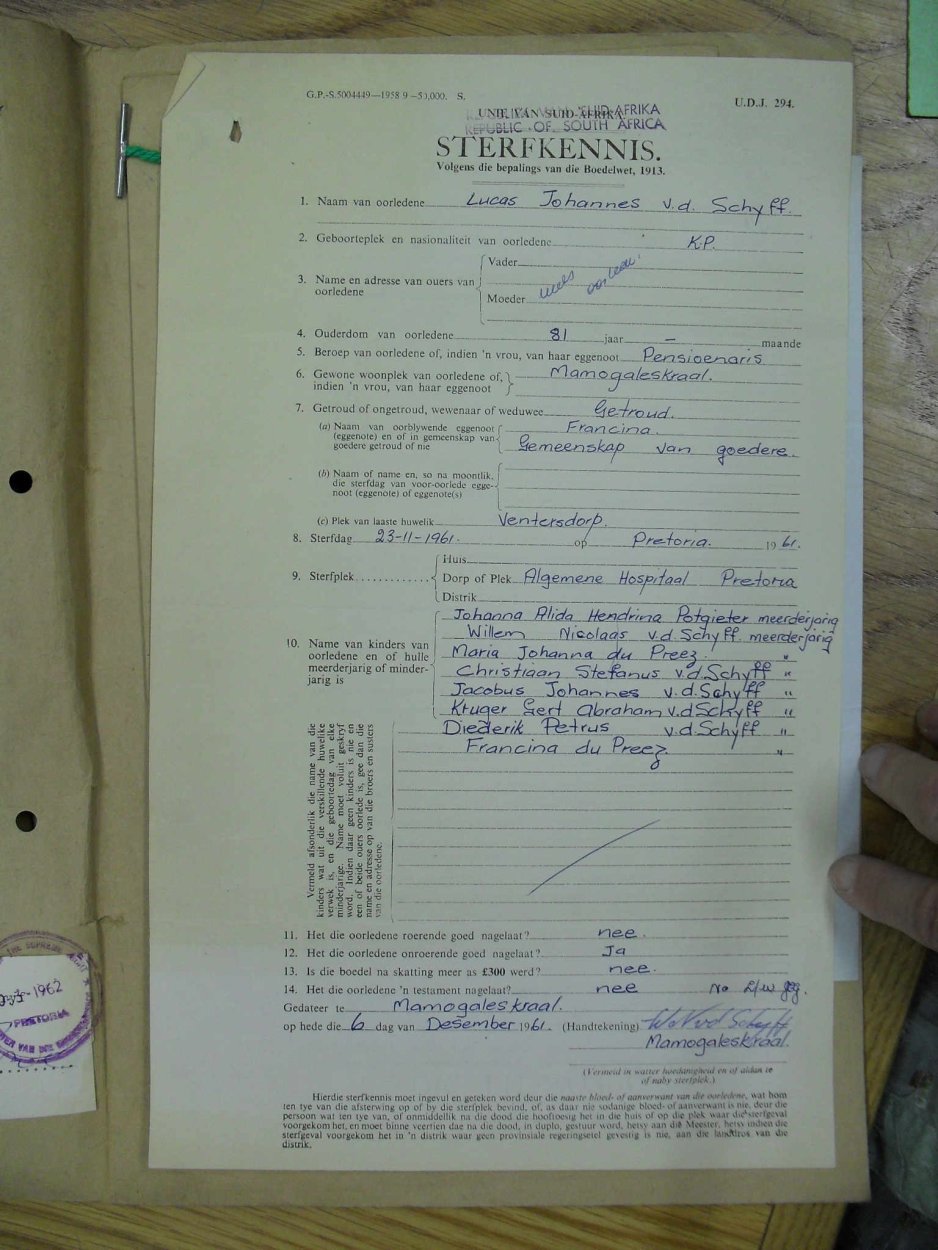 G.P.-S.5004449—1958 9—50,000. S.
U.D.J. 294.
UNIE VAN SUID-AFRIKA.
SUID-AFRIKA
REPUBLIC OF SOUTH AFRICA
STERFKENNIS.
Volgens die bepalings van die Boedelwet, 1913.
1. Naam van oorledene Lucas Johannes v.d. Schyff.
2. Geboorteplek en nasionaliteit van oorledene K.P.
3. Name en adresse van ouers van oorledene
Vader
Moeder
4. Ouderdom van oorledene 81 jaar – maande
5. Beroep van oorledene of, indien 'n vrou, van haar eggenoot Pensioenaris
6. Gewone woonplek van oorledene of, indien 'n vrou, van haar eggenoot Mamogaleskraal.
7. Getroud of ongetroud, wewenaar of weduwee Getroud.
(a) Naam van oorblywende eggenoot (eggenote) en of in gemeenskap van goedere getroud of nie
Francina.
Gemeenskap van goedere.
(b) Naam of name en, so na moontlik, die sterfdag van voor-oorlede eggenoot (eggenote) of eggenote(s)
(c) Plek van laaste huwelik Ventersdorp.
8. Sterfdag 23-11-1961. op Pretoria. 1961.
9. Sterfplek............
Huis
Dorp of Plek Algemene Hospitaal Pretoria
Distrik
10. Name van kinders van oorledene en of hulle meerderjarig of minderjarig is
Johanna Alida Hendrina Potgieter meerderjarig
Willem Nicolaas v.d. Schyff meerderjarig
Maria Johanna du Preez "
Christiaan Stefanus v.d. Schyff "
Jacobus Johannes v.d. Schyff "
Kruger Gert Abraham v.d Schyff "
Diederik Petrus v.d. Schyff "
Francina du Preez "
Vermeld afsonderlik die name van die
kinders wat uit die verskillende huwelike
verwek is, en die geboortedag van elke
minderjarige. Name moet voluit geskryf
word. Indien daar geen kinders is nie en
een of beide ouers oorlede is, gee dan die
name en adresse op van die broers en susters
van die oorledene.
11. Het die oorledene roerende goed nagelaat? nee.
12. Het die oorledene onroerende goed nagelaat? Ja
13. Is die boedel na skatting meer as £300 werd? nee.
14. Het die oorledene 'n testament nagelaat? nee No
Gedateer te Mamogaleskraal.
op hede die 6 dag van Desember 1961. (Handtekening) v d Schyff
Mamogaleskraal.
(Vermeld in watter hoedanigheid en of aldan te
of naby sterfplek.)
Hierdie sterfkennis moet ingevul en geteken word deur die naaste bloed- of aanverwant van die oorledene, wat hom
ten tye van die afsterwing op of by die sterfplek bevind, of, as daar nie sodanige bloed- of aanverwant is nie, deur die
persoon wat ten tye van, of onmiddellik na die dood die hooftoesig het in die huis of op die plek waar die sterfgeval
voorgekom het, en moet binne veertien dae na die dood, in duplo, gestuur word, hetsy aan die Meester, hetsy indien die
sterfgeval voorgekom het in 'n distrik waar geen provinsiale regeringsetel gevestig is nie, aan die landdros van die
distrik.
1962
PRETORIA